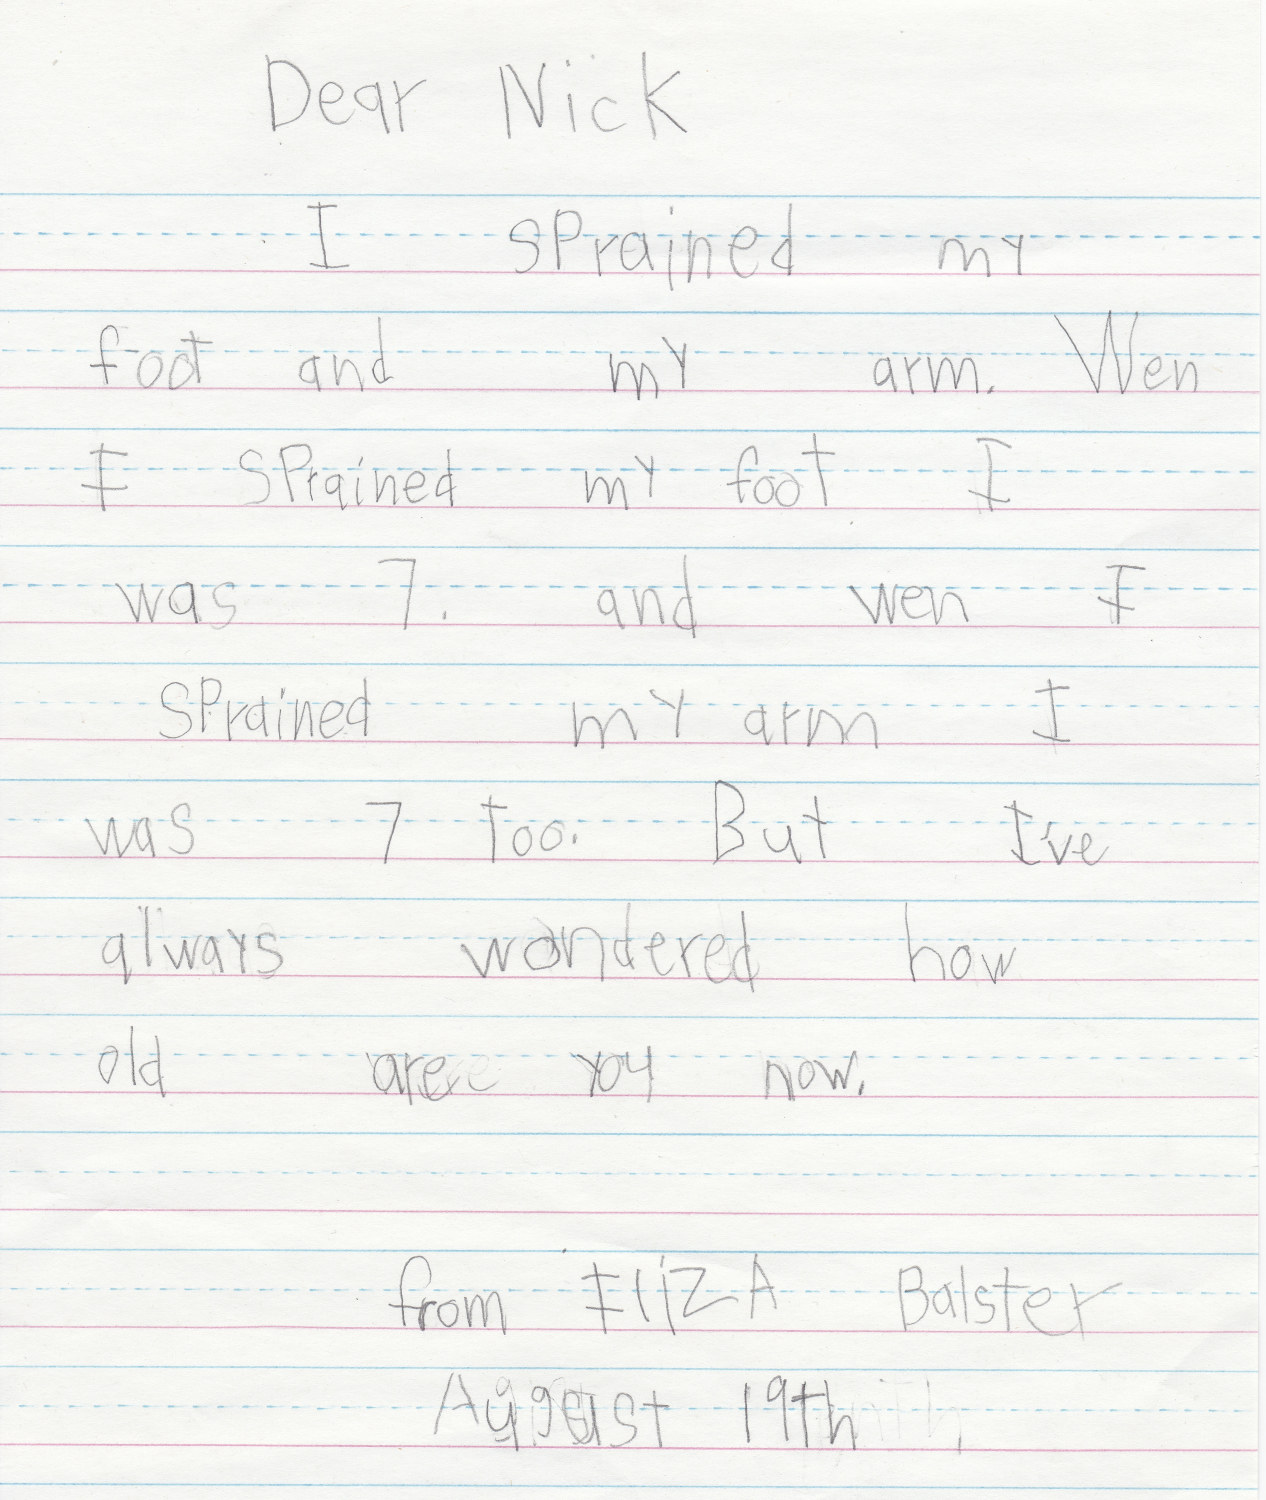 Dear Nick
I sprained my
foot and my arm. Wen
I sprained my foot I
was 7. and wen I
sprained my arm I
was 7 too. But I've
always wondered how
old are you now.
from ElizA Balster
August 19th